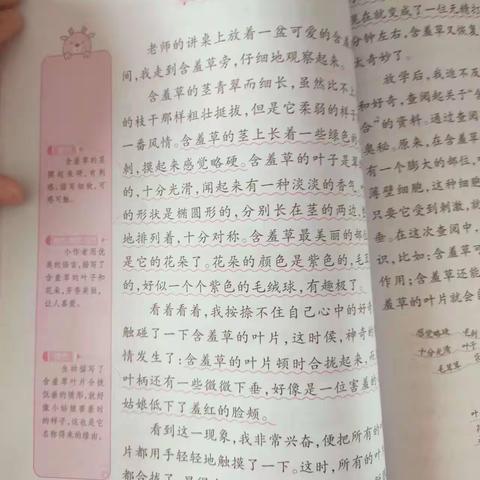 老师的讲桌上放着一盆可爱的含羞
间,我走到含羞草旁,仔细地观察起来。
含羞草的茎青翠而细长,虽然比不上
的枝干那样粗壮挺拔,但是它柔弱的样子
一番风情。含羞草的茎上长着一些绿色的
刺,摸起来感觉略硬。含羞草的叶子是
的,十分光滑,闻起来有一种淡淡的香气
的形状是椭圆形的,分别长在茎的两边,
地排列着,十分对称。含羞草最美丽的部位
是它的花朵了。花朵的颜色是紫色的,毛
的,好似一个个紫色的毛绒球,有趣极了。
看着看着,我按捺不住自己心中的好奇
触碰了一下含羞草的叶片,这时侯,神奇的
情发生了:含羞草的叶片顿时合拢起来,
叶柄还有一些微微下垂,好像是一位害羞的
姑娘低下了羞红的脸颊。
看到这一现象,我非常兴奋,便把所有的
片都用手轻轻地触摸了一下。这时,所有的叶
含羞草的茎
摸起来硬,有刺
感,描写细致,可
感可触。
小作者用优
美的语言,描写了
含羞草的叶子和
花朵,芬香美丽,
让人喜爱。
生动描写了
含羞草叶片合拢
低垂的情形,就好
像小姑娘害羞时
的样子,这也是它
名称得来的缘由。
现在就变成了一位无精打
分钟左右,含羞草又恢复
太奇妙了。
放学后,我迫不及
和好奇,查阅起关于“含
合”的资料。通过查阅
奥秘。原来,在含羞草
有一个膨大的部位,
薄壁细胞,这种细胞
只要它受到刺激,就
在这次查阅中,
识,比如:含羞草可
作用;含羞草还能
羞草的叶片就会
感觉略硬
十分光滑
毛茸茸
叶子